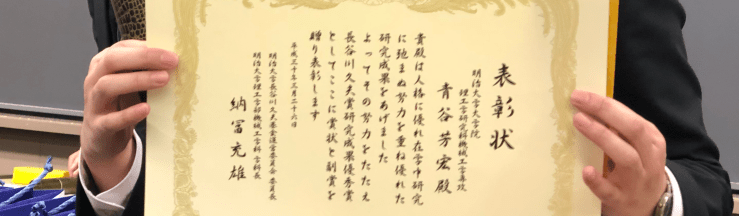 表彰状
明治大学大学院
理工学研究科機械工学専攻
青谷芳宏殿
貴殿は人格に優れ在学中研究
に弛まぬ努力を重ね優れた
研究成果をあげました
よってその努力をたたえ
長谷川久夫賞研究成果優秀賞
としてここに賞状と副賞を
贈り表彰します
平成三十年三月二十六日
明治大学長谷川久夫基金運営委員会委員長
明治大学理工学部機械工学科学科長
納冨充雄